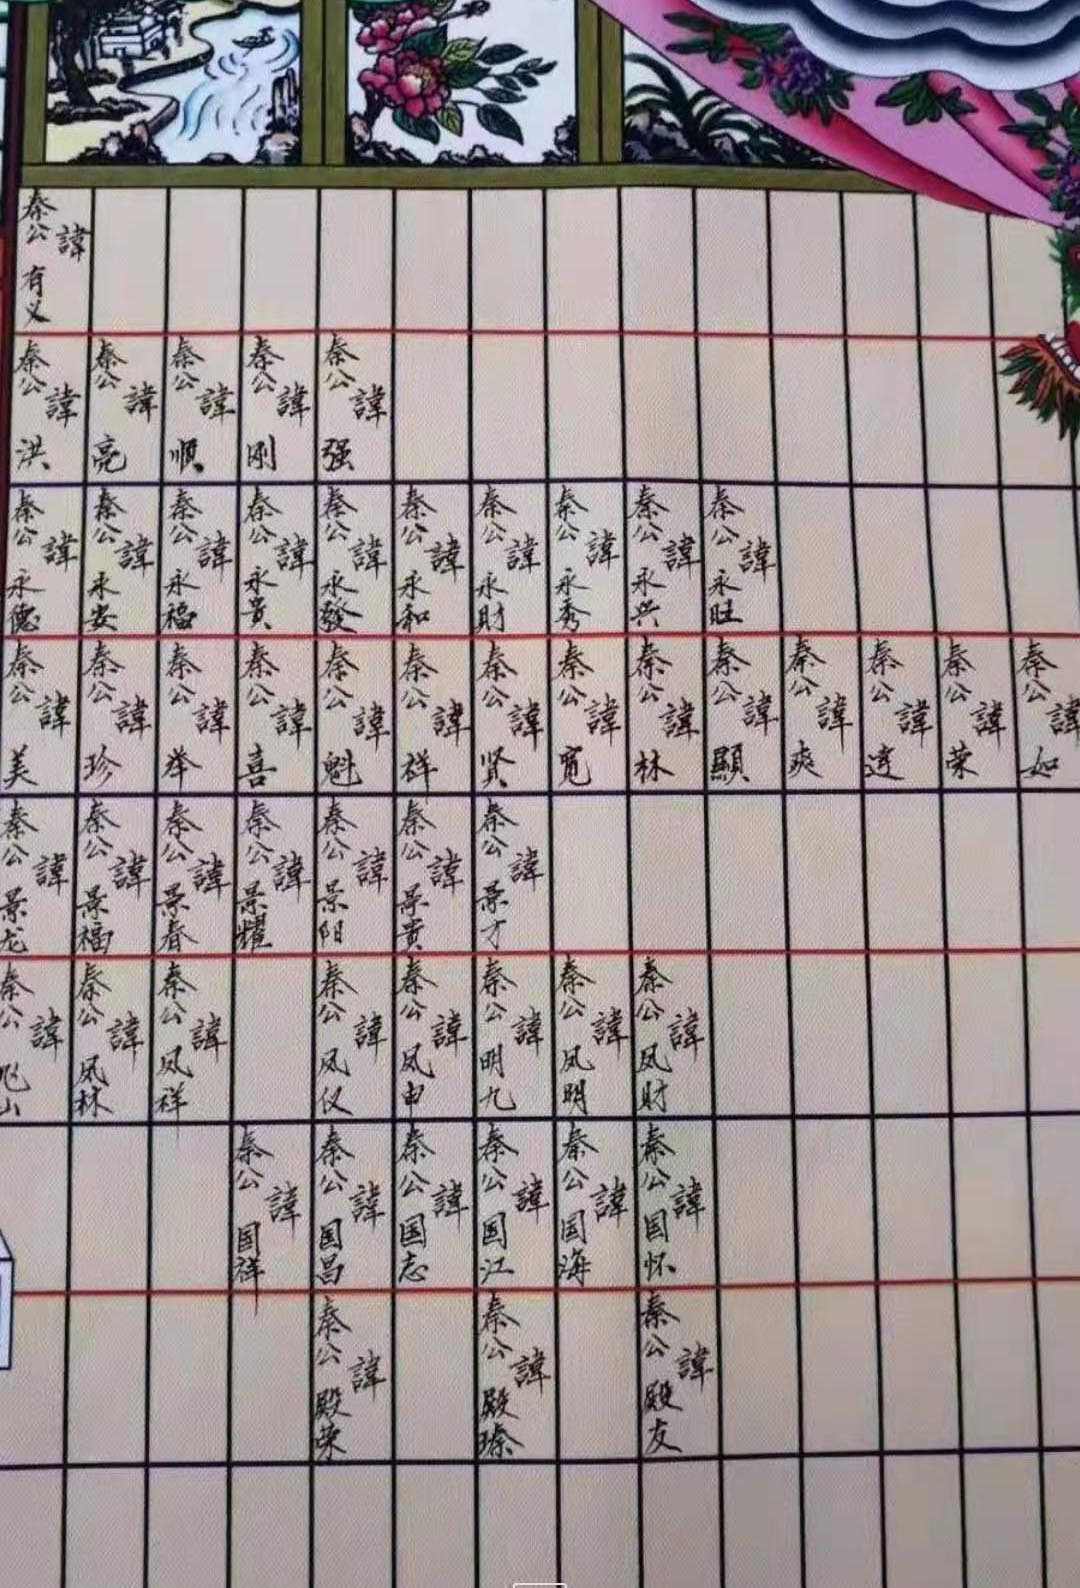 秦公諱有义
秦公諱洪
秦公諱亮
秦公諱顺
秦公諱刚
秦公諱强
秦公諱永德
秦公諱永安
秦公諱永福
秦公諱永貴
秦公諱永發
秦公諱永和
秦公諱永財
秦公諱永秀
秦公諱永兴
秦公諱永旺
秦公諱美
秦公諱珍
秦公諱举
秦公諱喜
秦公諱魁
秦公諱祥
秦公諱贤
秦公諱宽
秦公諱林
秦公諱顯
秦公諱爽
秦公諱
秦公諱荣
秦公諱如
秦公諱景龙
秦公諱景福
秦公諱景春
秦公諱景耀
秦公諱景阳
秦公諱景贵
秦公諱景才
秦公諱山
秦公諱凤林
秦公諱凤祥
秦公諱凤仪
秦公諱凤申
秦公諱明九
秦公諱凤明
秦公諱凤財
秦公諱国祥
秦公諱国昌
秦公諱国志
秦公諱国江
秦公諱国海
秦公諱国怀
秦公諱殿荣
秦公諱殿臻
秦公諱殿友